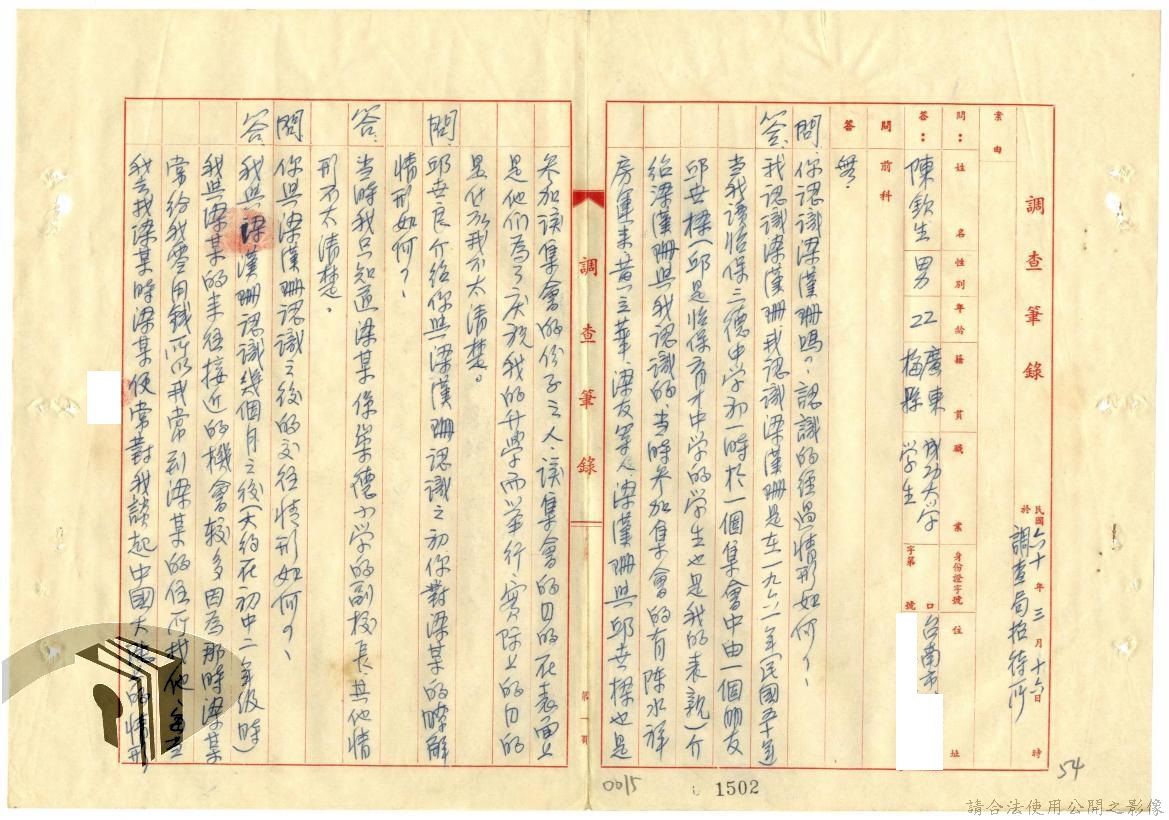 調查筆錄
民國六十年三月十六日 時
於 調查局招待所
案由
問： 姓名 性別 年齡 籍貫 職業 身份證字號 住址
答： 陳欽生 男 22 廣東梅縣 成功大学学生 字第 號 口 台南市
問 前科
答 無.
問. 你認識梁漢珊嗎？認識的經過情形如何？
答. 我認識梁漢珊我認識梁漢珊是在一九六一年民國五十年
当我讀怡保三德中学初一時於一個集會中由一個朋友
邱世樑(邱是怡保育才中学的学生也是我的表親)介
给梁漢珊與我認識的.当時参加集會的有陈水祥
房運来黄立華、梁友等人梁漢珊與邱世樑也是
調查筆錄
第一頁
参加該集會的份子之人.該集會的目的在表面上
是他們為了庆祝我的升學而举行.實际上的目的
是什么我不太清楚。
問. 邱世良介绍你與梁漢珊認識之初你對梁某的瞭解
情形如何？
答. 当時我只知道梁某係崇德小学的副校長.其他情
形不太清楚.
問 你與梁漢珊認識之後的交往情形如何？
答. 我與梁漢珊認識幾個月之後(大约在初中二年级時)
我與梁某的来往接近的機會較多因為那時梁某
常给我零用錢所以我常到梁某的住所找他.
我去找梁某時梁某便常對我談起中國大陸的情形
0015
1502
54
請合法使用公開之影像